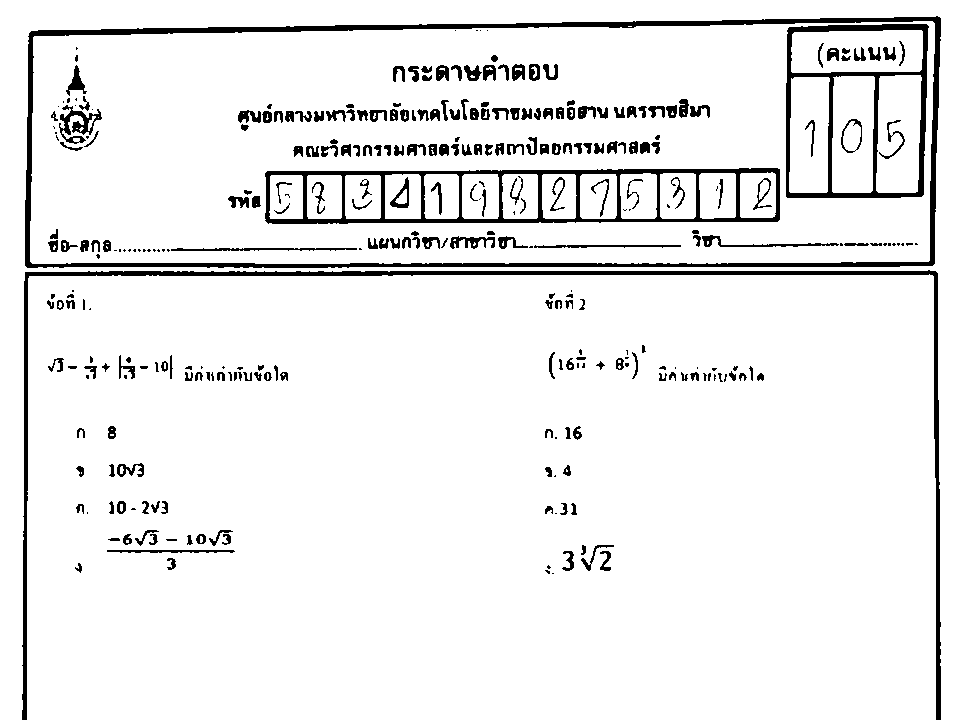 กระดาษคำตอบ
(คะแนน)
ศูนย์กลางมหาวิทยาลัยเทคโนโลยีราชมงคลอีสาน นครราชสีมา
1 0 5
คณะวิศวกรรมศาสตร์และสถาปัตยกรรมศาสตร์
รหัส 5 8 3 4 1 9 8 2 7 5 3 1 2
ชื่อ-สกุล แผนกวิชา/สาขาวิชา วิชา
ข้อที่ 1.
มีค่าเท่ากับข้อใด
ก 8
ข 10√3
ค. 10 - 2√3
ง (-6√3 − 10√3)/3
ข้อที่ 2
มีค่าเท่ากับข้อใด
ก. 16
ข. 4
ค.31
ง. 3∛2